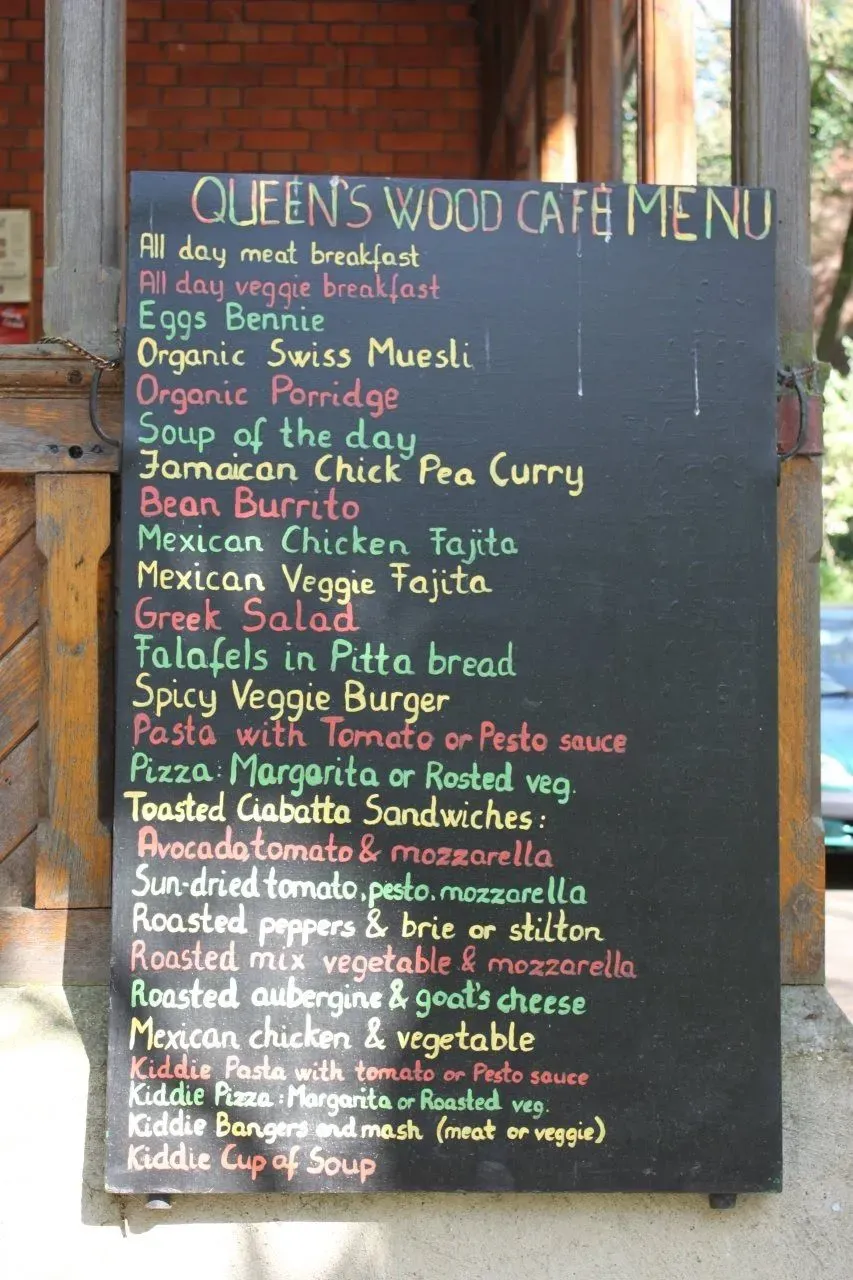 QUEEN'S WOOD CAFE MENU
All day meat breakfast
All day veggie breakfast
Eggs Bennie
Organic Swiss Muesli
Organic Porridge
Soup of the day
Jamaican Chick Pea Curry
Bean Burrito
Mexican Chicken Fajita
Mexican Veggie Fajita
Greek Salad
Falafels in Pitta bread
Spicy Veggie Burger
Pasta with Tomato or Pesto sauce
Pizza: Margarita or Rosted veg.
Toasted Ciabatta Sandwiches:
Avocado, tomato & mozzarella
Sun-dried tomato, pesto, mozzarella
Roasted peppers & brie or stilton
Roasted mix vegetable & mozzarella
Roasted aubergine & goat's cheese
Mexican chicken & vegetable
Kiddie Pasta with tomato or Pesto sauce
Kiddie Pizza: Margarita or Roasted veg.
Kiddie Bangers and mash (meat or veggie)
Kiddie Cup of Soup